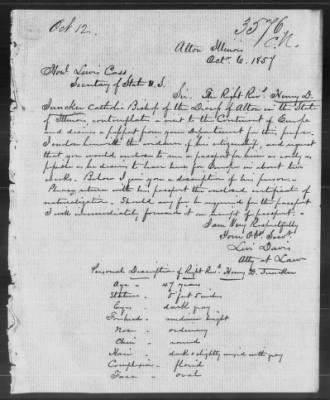 Oct 12.
3576
C.N.
Alton Illinois
Oct. 6. 1857
Hon. Lewis Cass
Secretary of State U.S.
Sir. The Right Rev. Henry D.
Juncker Catholic Bishop of the Diocese of Alton in the State
of Illinois, contemplates a visit to the Continent of Europe
and desires a passport from your department for this purpose.
I enclose herewith the evidence of his citizenship, and request
that you would enclose to me a passport for him as early as
possible as he desires to leave here for Europe in about two
weeks. Below I give you a description of his person.
Please return with his passport the enclosed certificate of
naturalization. Should any fee be required for the passport
I will immediately forward it on receipt of passport.
I am Very Respectfully
Your Obt. Servt.
Levi Davis
Atty at Law
Personal Description of Right Rev. Henry D. Juncker
Age " 47 years
Stature " 5 feet inches
Eyes " dark gray
Forehead " medium height
Nose " ordinary
Chin " round
Hair " dark & slightly mixed with gray
Complexion " florid
Face " oval